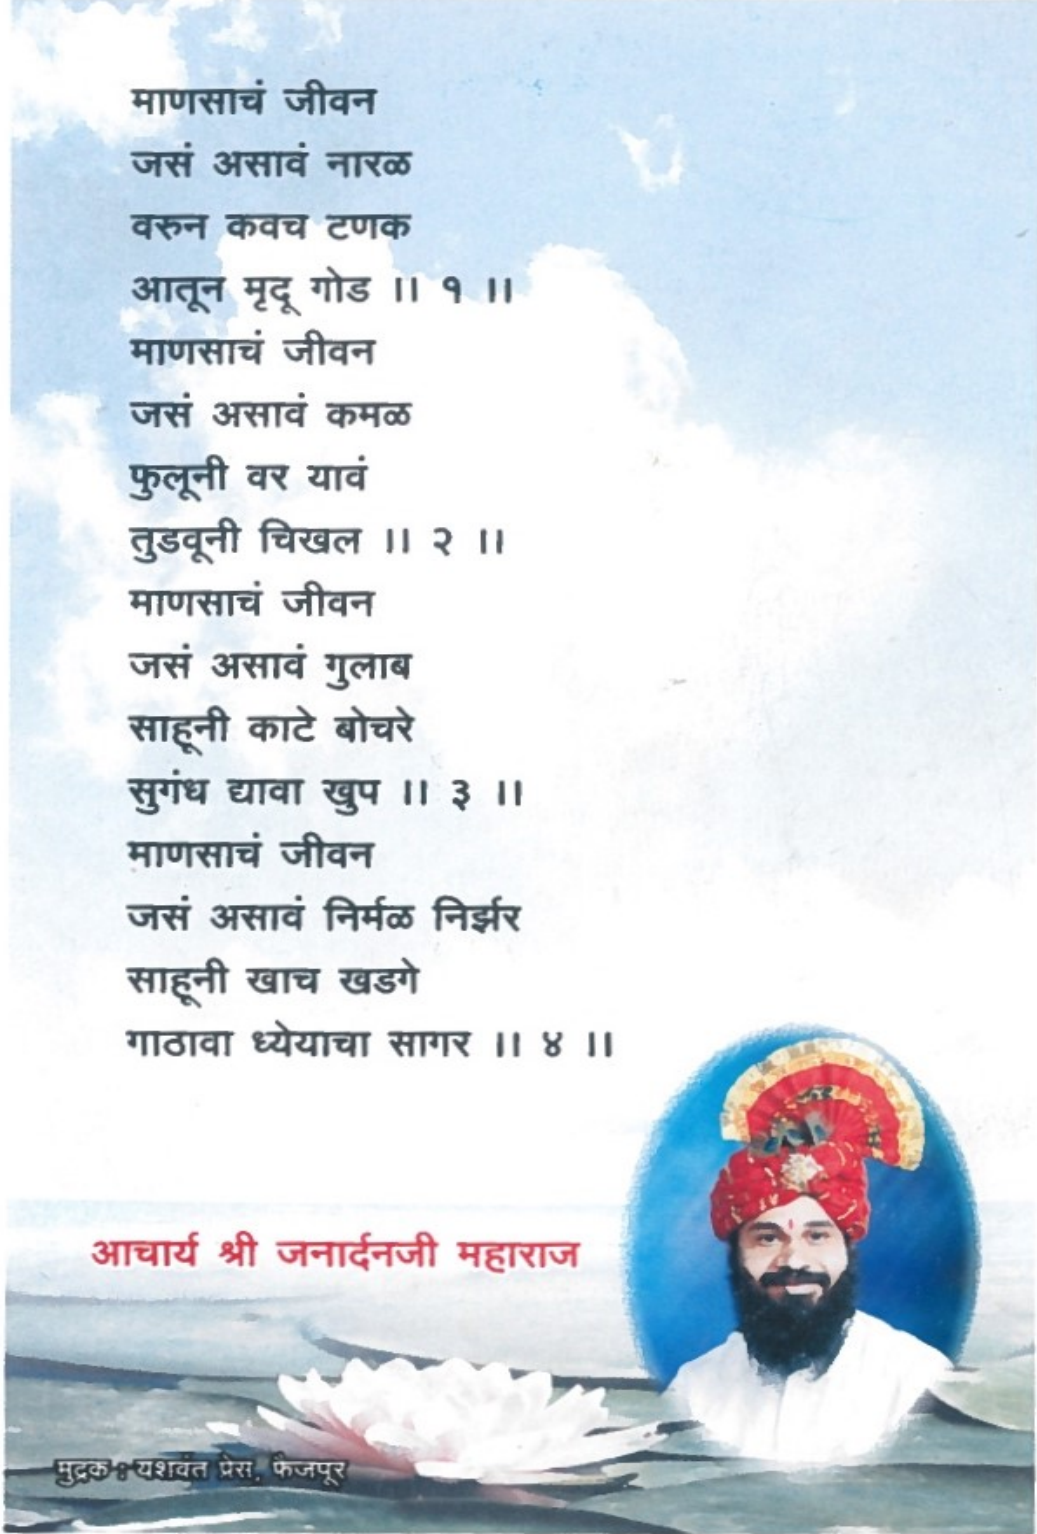 माणसाचं जीवन
जसं असावं नारळ
वरुन कवच टणक
आतून मृदू गोड ।। १ ।।
माणसाचं जीवन
जसं असावं कमळ
फुलूनी वर यावं
तुडवूनी चिखल ।। २ ।।
माणसाचं जीवन
जसं असावं गुलाब
साहूनी काटे बोचरे
सुगंध द्यावा खुप ।। ३ ।।
माणसाचं जीवन
जसं असावं निर्मळ निर्झर
साहूनी खाच खडगे
गाठावा ध्येयाचा सागर ।। ४ ।।
आचार्य श्री जनार्दनजी महाराज
मुद्रक : यशवंत प्रेस, फैजपूर